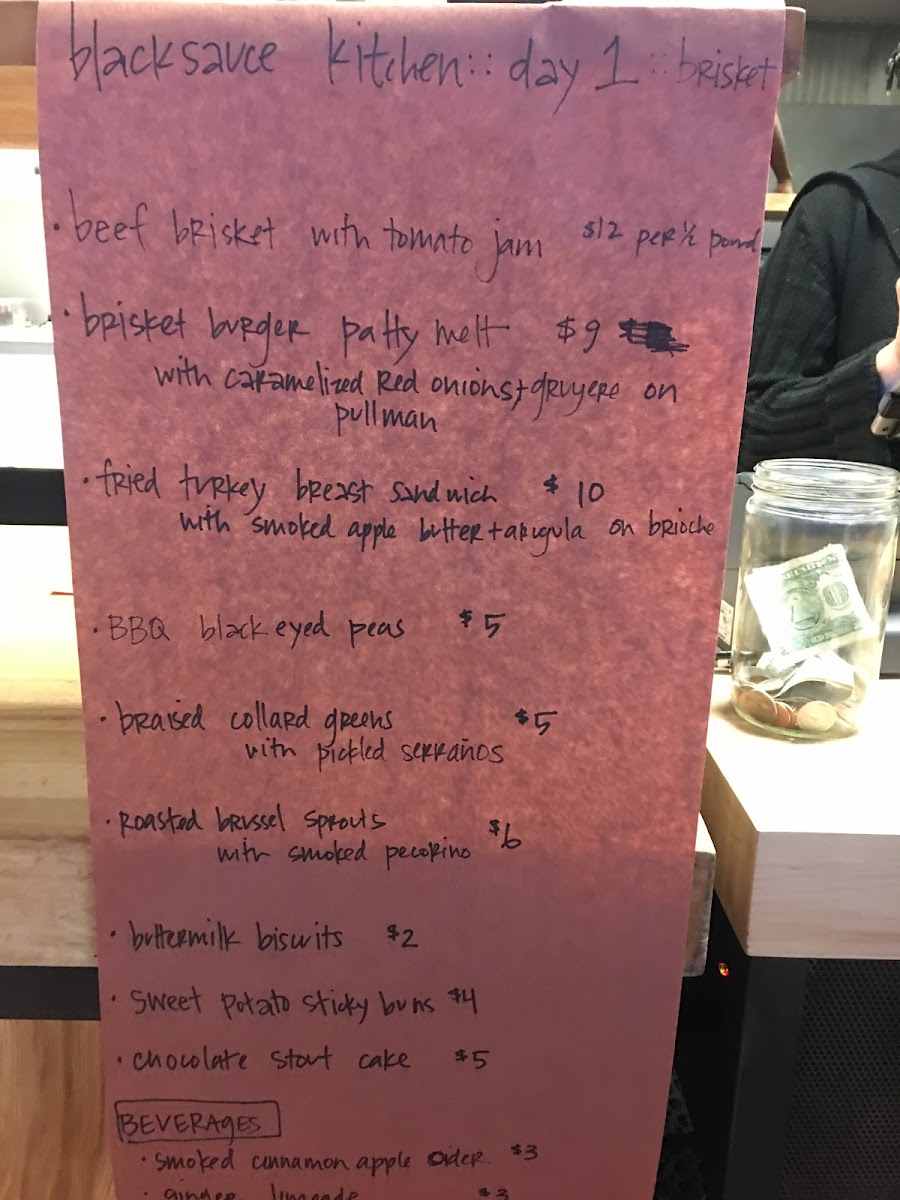 blacksauce kitchen :: day 1 :: brisket
· beef brisket with tomato jam $12 per ½ pound
· brisket burger patty melt $9
with caramelized red onions + gruyere on
pullman
· fried turkey breast sandwich $10
with smoked apple butter + arugula on brioche
· BBQ black eyed peas $5
· braised collard greens $5
with pickled serraños
· roasted brussel sprouts $6
with smoked pecorino
· buttermilk biscuits $2
· sweet potato sticky buns $4
· chocolate stout cake $5
BEVERAGES
· smoked cinnamon apple cider $3
· ginger limeade $3